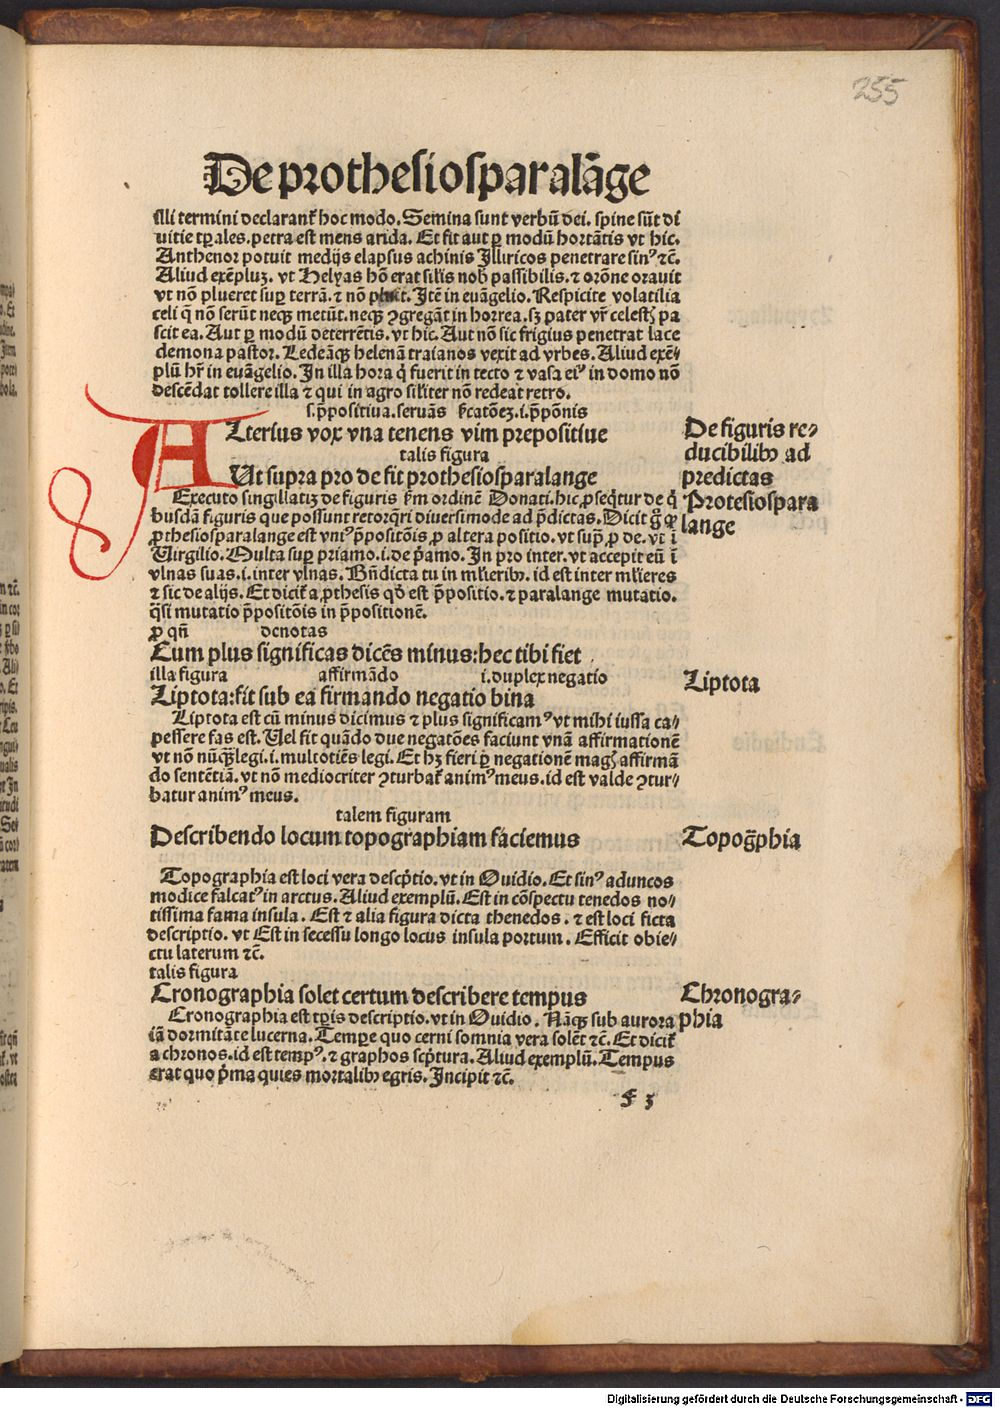 255
De prothesiosparalāge
illi termini declarant᷑ hoc modo. Semina sunt verbū dei. spine sūt di
uitie tꝑales. petra est mens arida. Et fit aut ꝑ modū hortātis vt hic.
Anthenor potuit medijs elapsus achinis Illiricos penetrare sinꝰ ⁊c̄.
Aliud exēpluꝫ. vt Helyas hō erat silis nob passibilis. ⁊ orōne orauit
vt nō plueret suꝑ terrā. ⁊ nō pluit. Itē in euāgelio. Respicite volatilia
celi q̄ nō serūt neqꝫ metūt. neqꝫ ꝯgregāt in horrea. sꝫ pater vr̄ celestꝭ pa
scit ea. Aut ꝑ modū deterrētis. vt hic. Aut nō sic frigius penetrat lace
demona pastor. Ledeāqꝫ helenā traianos vexit ad vrbes. Aliud exē⸗
plū hr̄ in euāgelio. In illa hora q̄ fuerit in tecto ⁊ vasa eiꝰ in domo nō
descēdat tollere illa ⁊ qui in agro siliter nō redeat retro.
s. p̄positiua. seruās p̄catōeꝫ. i. p̄pōnis
ALterius vox vna tenens vim prepositiue
talis figura
Ut supra pro de fit prothesiosparalange
De figuris re⸗
ducibilibꝫ ad
predictas
Protesiospara
lange
Executo singillatiꝫ de figuris ẜm ordinē Donati. hic ꝓseq̄tur de q̄
busdā figuris que possunt retorq̄ri diuersimode ad p̄dictas. Dicit g̊ ꝙ
ꝓthesiosparalange est vniꝰ p̄positōis ꝓ altera positio. vt sup̄ ꝓ de. vt ī
Uirgilio. Multa suꝑ priamo. i. de p̄amo. In pro inter. vt accepit eū ī
vlnas suas. i. inter vlnas. Bn̄dicta tu in mlieribꝫ. id est inter mlieres
⁊ sic de alijs. Et dicit᷑ a ꝓthesis qd̓ est p̄positio. ⁊ paralange mutatio.
q̄si mutatio p̄positōis in p̄positionē.
ꝓ qn̄ denotas
Cum plus significas dicēs minus: hec tibi fiet
illa figura affirmādo i. duplex negatio
Liptota: fit sub ea firmando negatio bina
Liptota
Liptota est cū minus dicimus ⁊ plus significamꝰ vt mihi iussa ca⸗
pessere fas est. Uel fit quādo due negatōes faciunt vnā affirmationē
vt nō nūqꝫ legi. i. multotiēs legi. Et hꝫ fieri ꝑ negationē magꝭ affirmā
do sentētiā. vt nō mediocriter ꝯturbat᷑ animꝰ meus. id est valde ꝯtur⸗
batur animꝰ meus.
talem figuram
Describendo locum topographiam faciemus
Topog̅phia
Topographia est loci vera descp̄tio. vt in Ouidio. Et sinꝰ aduncos
modice falcatꝰ in arctus. Aliud exemplū. Est in cōspectu tenedos no⸗
tissima fama insula. Est ⁊ alia figura dicta thenedos. ⁊ est loci ficta
descriptio. vt Est in secessu longo locus insula portum. Efficit obie⸗
ctu laterum ⁊c̄.
talis figura
Cronographia solet certum describere tempus
Chronogra⸗
phia
Cronographia est tꝑis descriptio. vt in Ouidio. Nāqꝫ sub aurora
iā dormitāte lucerna. Tempe quo cerni somnia vera solēt ⁊c̄. Et dicit᷑
a chronos. id est tempꝰ. ⁊ graphos scp̄tura. Aliud exemplū. Tempus
erat quo p̄ma quies mortalibꝫ egris. Incipit ⁊c̄.
f 3
Digitalisierung gefördert durch die Deutsche Forschungsgemeinschaft - DFG